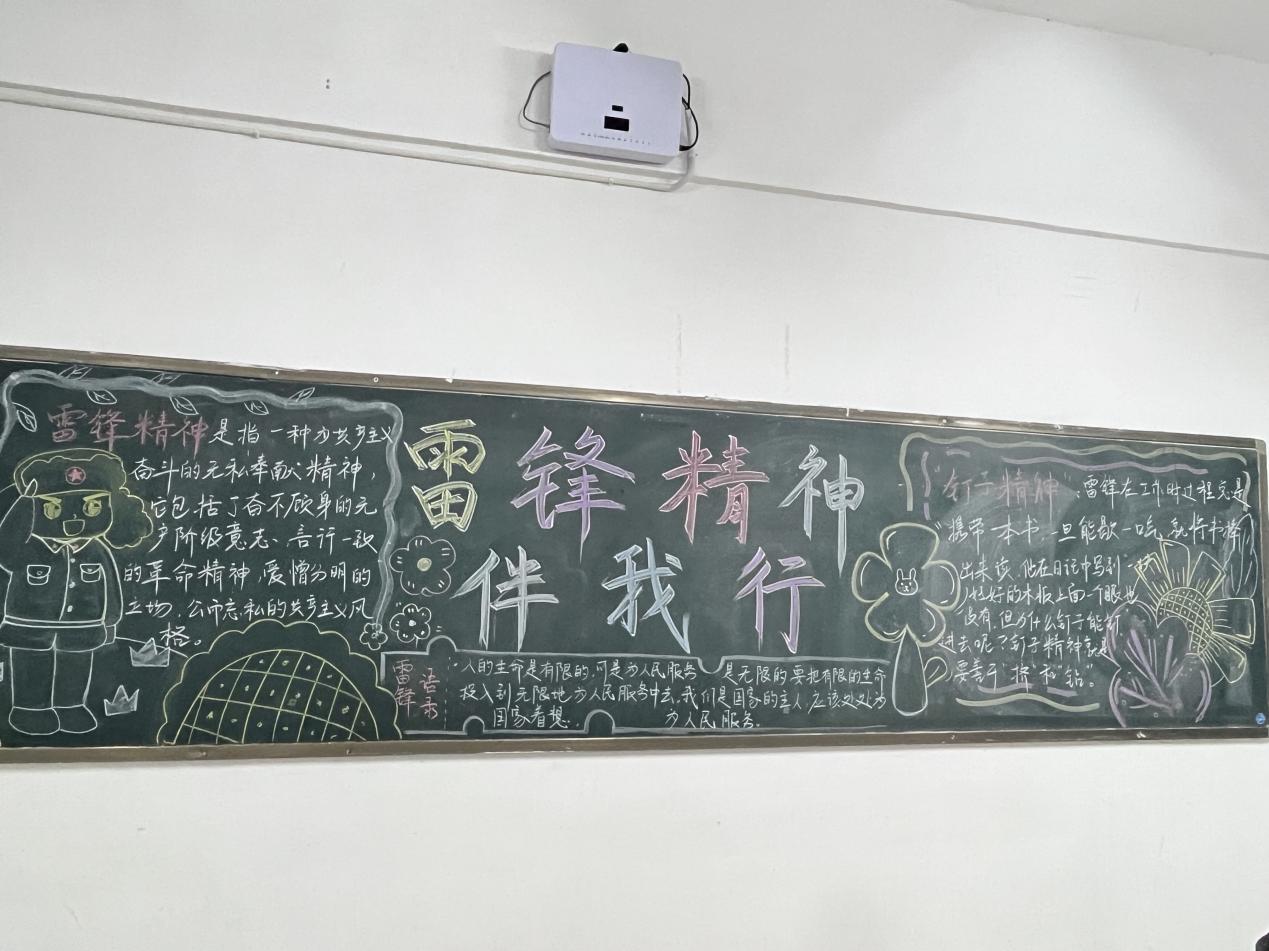 雷锋精神是指一种为共产主义
奋斗的无私奉献精神，
它包括了奋不顾身的无
产阶级意志、言行一致
的革命精神，爱憎分明的
立场，公而忘私的共产主义风
格。
雷锋精神
伴我行
雷锋语录
：人的生命是有限的，可是为人民服务
是无限的要把有限的生命
投入到无限地为人民服务中去，我们是国家的主人，应该处处为
国家着想，
为人民服务。
"钉子精神"：雷锋在工作时过程总是
"携带一本书，一旦能歇一
就将书掏
出来读，他在日记中写到一块
好的木板上面一个眼也
没有，但为什么钉子能钉
进去呢？钉子精神就是
要善于"挤"和"钻"。